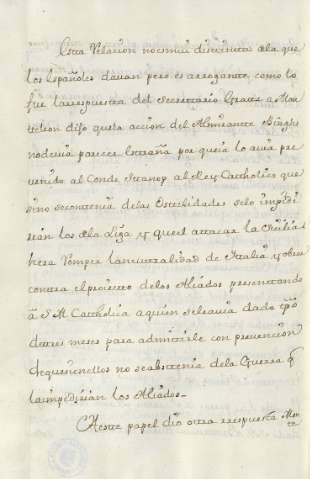 Esta Relacion no es mui distinta ala que
los Españoles davan pero es arrogante, como lo
fue la respuesta del Secretario Craus a Mon
teleon dijo que la accion del Almirante Binghs
no devia parecer Estraña porque ia lo avia pre
venido al Conde Stanop al Rey Catholico que
sino se contenia de las Ostilidades selo impedi
rian los dela Liga, y que el attacar la Sicilia
hera romper la neutralidad de Italia, y obrar
contra el proiecto de los Aliados presentando
â S. M. Catholica a quien se le avia dado tpō
de tres meses para admitirle con prevencion
de que si en ellos no se abstenia de la Guerra q̄
la impedirian los Aliados.
A este papel dio otra respuesta Mon